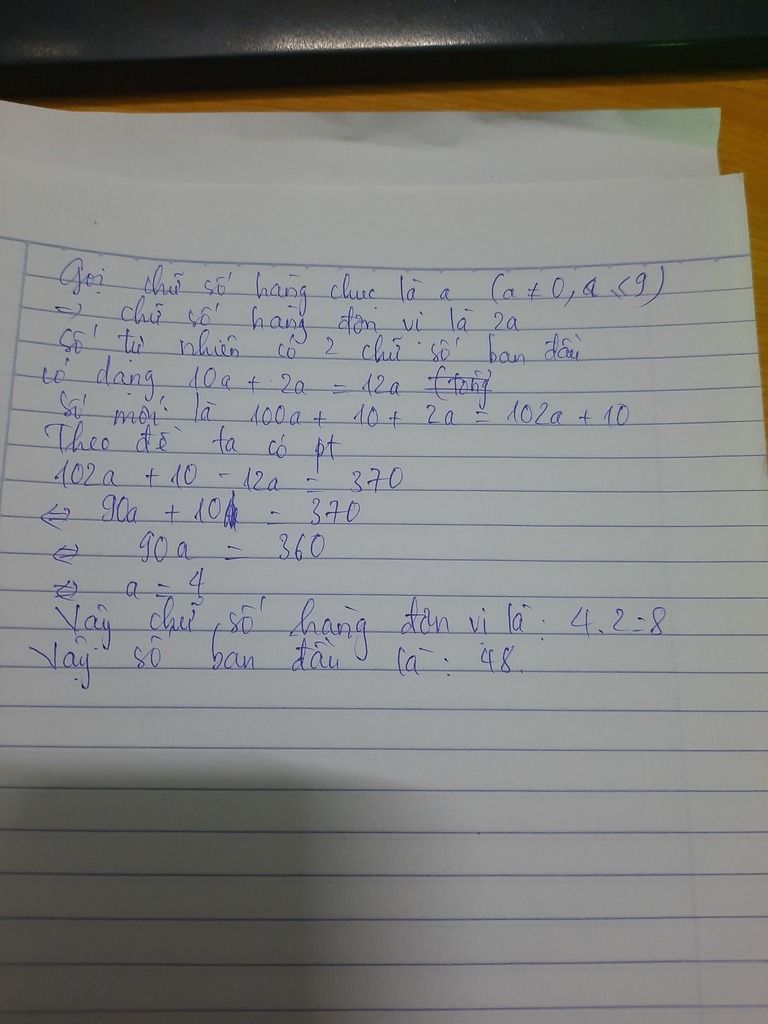 Gọi chữ số hàng chục là a (a ≠ 0, a < 9)
=> chữ số hàng đơn vị là 2a
số tự nhiên có 2 chữ số ban đầu
có dạng 10a + 2a = 12a
Số mới là 100a + 10 + 2a = 102a + 10
Theo đề ta có pt
102a + 10 - 12a = 370
⇔ 90a + 10 = 370
⇔ 90a = 360
⇔ a = 4
Vậy chữ số hàng đơn vị là: 4.2=8
Vậy số ban đầu là: 48.